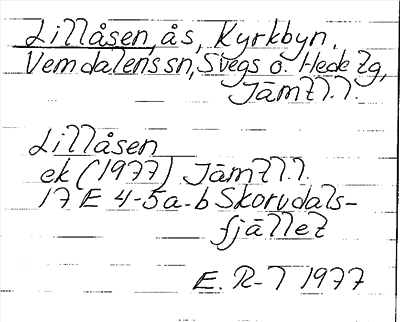 Lillåsen, ås, Kyrkbyn,
Vemdalens sn, Svegs o. Hede tg,
Jämtl.l.
Lillåsen
ek (1977) Jämtl.l.
17 E 4-5a-b Skorvdals-
fjället
E. R-T 1977